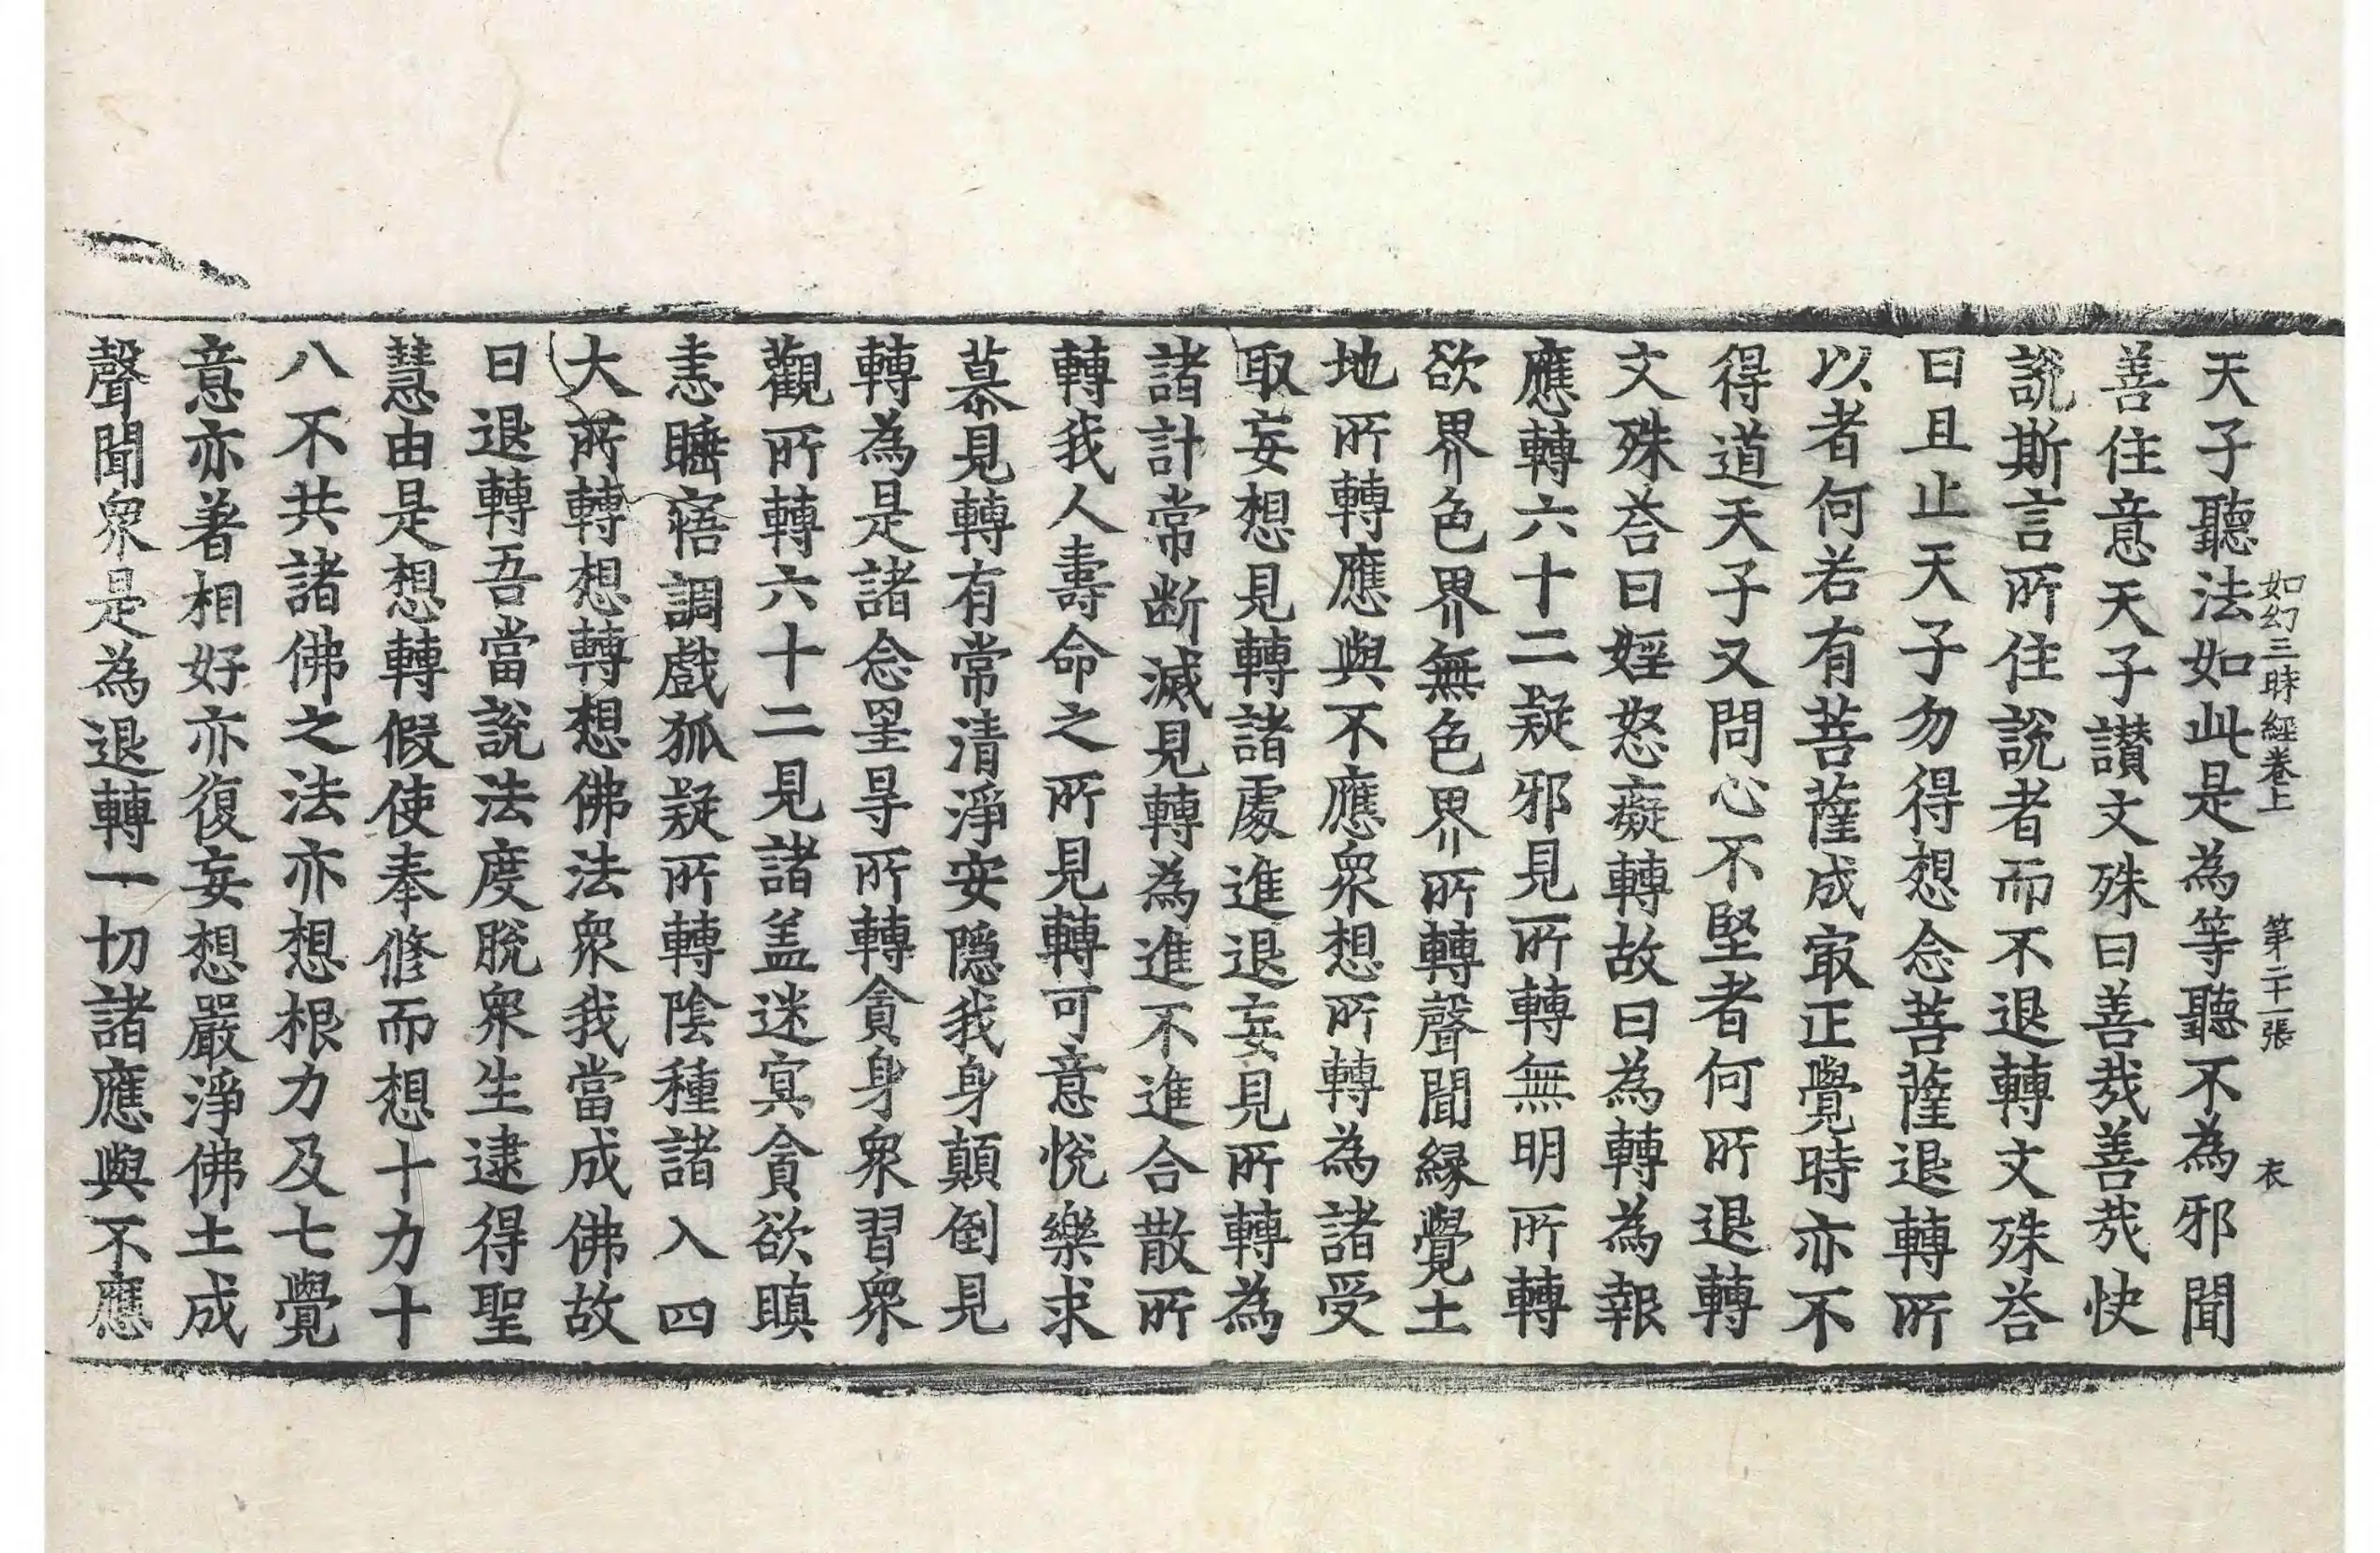 如幻三昧經卷上　第二十一張　衣
天子聽法如此是為等聽不為邪聞
善住意天子讃文殊曰善㢤善㢤快
說斯言所住說者而不退轉文殊荅
曰且止天子勿得想念菩薩退轉所
以者何若有菩薩成㝡正覺時亦不
得道天子又問心不堅者何所退轉
文殊荅曰婬怒癡轉故曰為轉為報
應轉六十二疑邪見所轉無明所轉
欲界色界無色界所轉聲聞緣覺土
地所轉應與不應衆想所轉為諸受
取妄想見轉諸處進退妄見所轉為
諸計常断滅見轉為進不進合散所
轉我人壽命之所見轉可意悅樂求
慕見轉有常清淨安隱我身顛倒見
轉為是諸念罣㝵所轉貪身衆習衆
觀所轉六十二見諸盖迷冥貪欲瞋
恚睡寤調戲狐疑所轉陰種諸入四
大所轉想轉想佛法衆我當成佛故
曰退轉吾當說法度脫衆生逮得聖
慧由是想轉假使奉修而想十力十
八不共諸佛之法亦想根力及七覺
意亦著相好亦復妄想嚴淨佛土成
聲聞衆是為退轉一切諸應與不應